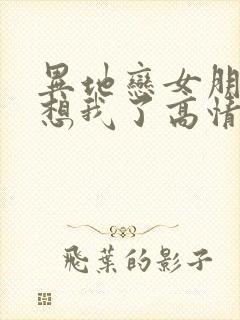 異地戀女朋
想我了高情
飛葉的影子